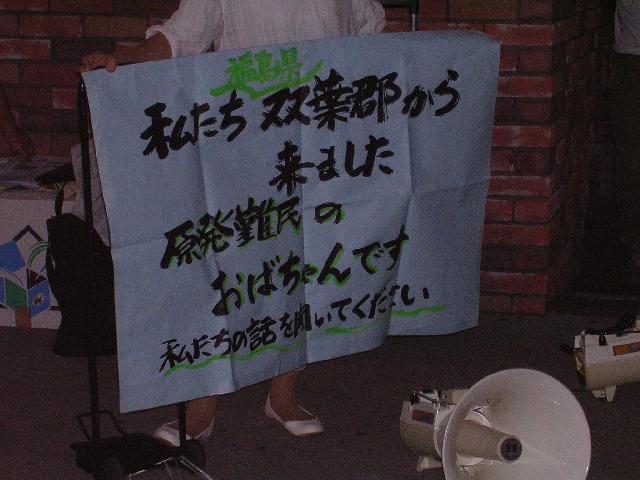 福島県
私たち 双葉郡から
来ました
原発難民の
おばちゃんです
私たちの話を聞いてください